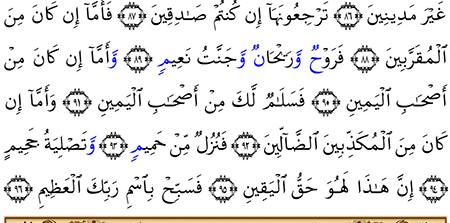 غَيْرَ مَدِينِينَ ﴿٨٦﴾ تَرْجِعُونَهَآ إِن كُنتُمْ صَـٰدِقِينَ ﴿٨٧﴾ فَأَمَّآ إِن كَانَ مِنَ
ٱلْمُقَرَّبِينَ ﴿٨٨﴾ فَرَوْحٌ وَرَيْحَانٌ وَجَنَّتُ نَعِيمٍ ﴿٨٩﴾ وَأَمَّآ إِن كَانَ مِنْ
أَصْحَـٰبِ ٱلْيَمِينِ ﴿٩٠﴾ فَسَلَـٰمٌ لَّكَ مِنْ أَصْحَـٰبِ ٱلْيَمِينِ ﴿٩١﴾ وَأَمَّآ إِن
كَانَ مِنَ ٱلْمُكَذِّبِينَ ٱلضَّآلِّينَ ﴿٩٢﴾ فَنُزُلٌ مِّنْ حَمِيمٍ ﴿٩٣﴾ وَتَصْلِيَةُ جَحِيمٍ
﴿٩٤﴾ إِنَّ هَـٰذَا لَهُوَ حَقُّ ٱلْيَقِينِ ﴿٩٥﴾ فَسَبِّحْ بِٱسْمِ رَبِّكَ ٱلْعَظِيمِ ﴿٩٦﴾